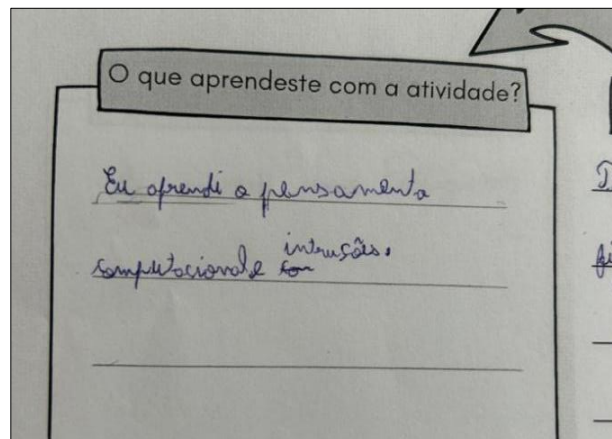 O que aprendeste com a atividade?
Eu aprendi o pensamento
computacional e intruções.